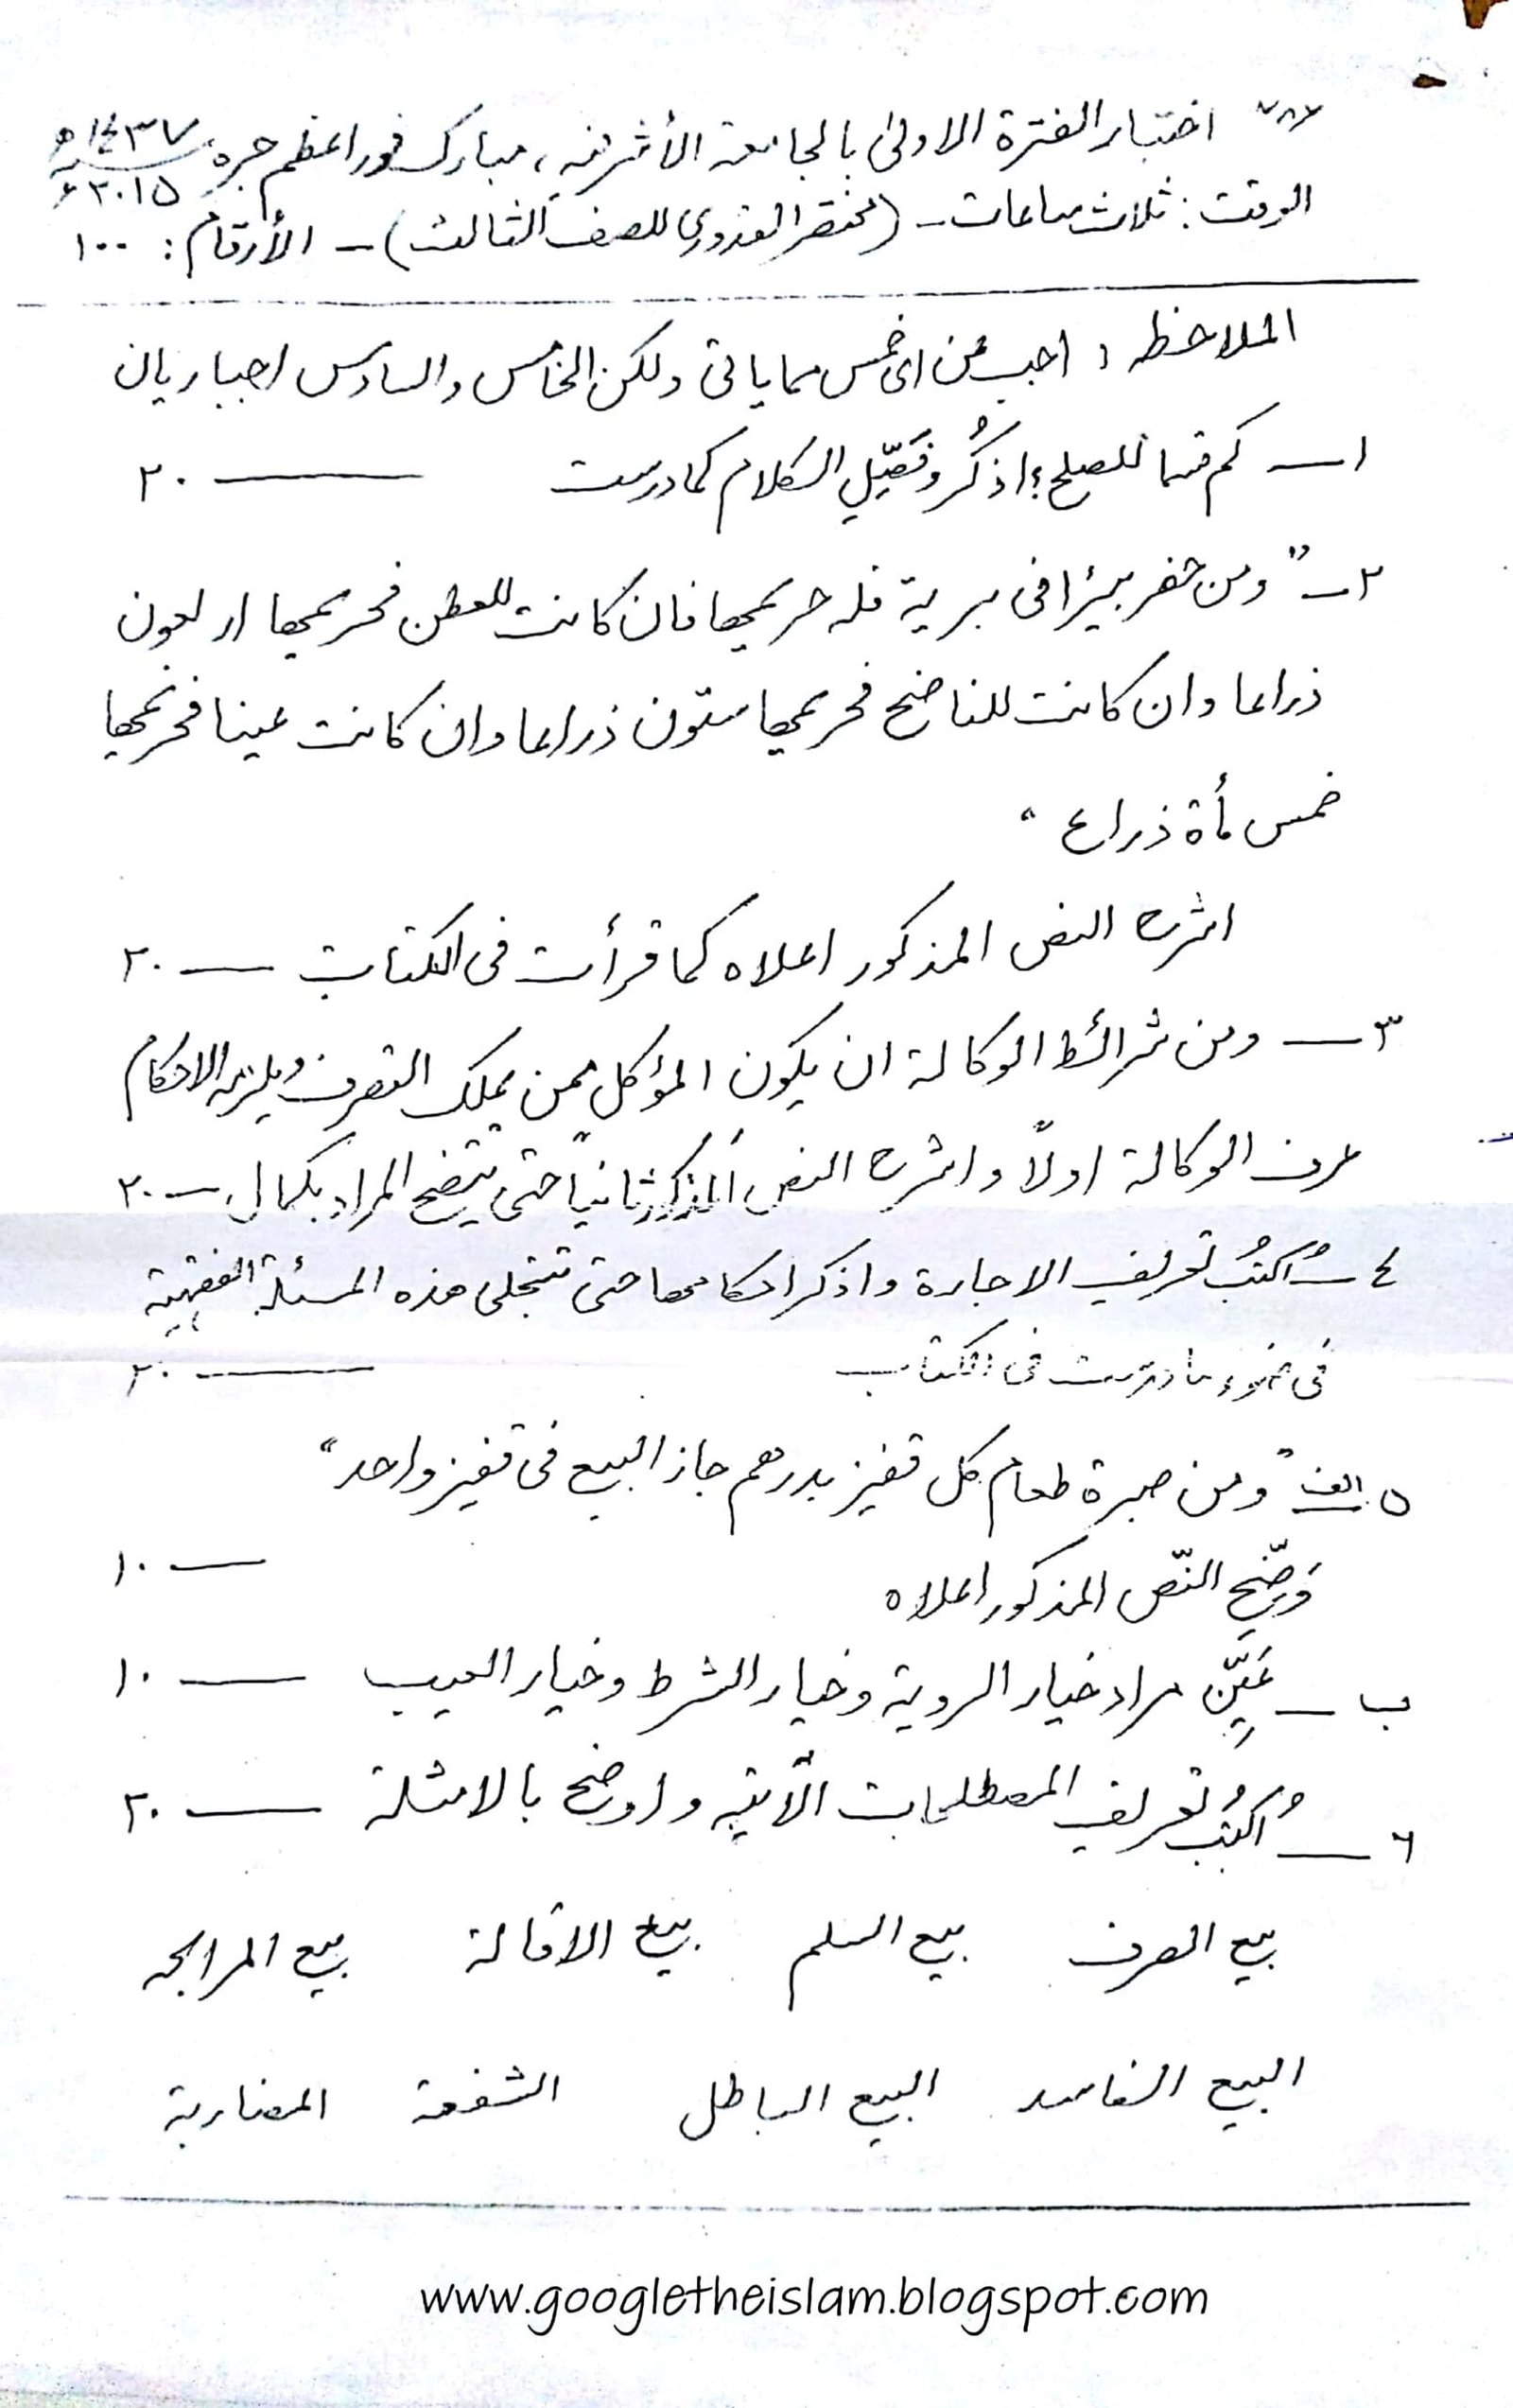 ٧٨٦ اختبار الفترة الاولىٰ بالجامعة الأشرفيه، مباركفور اعظم جره ١٤٣٧ھ
٢٠١٥ء
الوقت: ثلاث ساعات - (مختصر القدورى للصف الثالث) - الأرقام: ١٠٠
الملاحظه: اجب عن اى خمس مما ياتى ولكن الخامس والسادس اجباريان
١ — كم قسما للصلح؟ اذكُر وفَصِّلِ الكلام كما درست — ٢٠
٢ - " ومن حفر بيئرا فى برية فله حريمها فان كانت للعطن فحريمها اربعون
ذراعا وان كانت للناضح فحريمها ستون ذراعا وان كانت عينا فحريمها
خمس مأة ذراع "
اشرح النص المذكور اعلاه كما قرأت فى الكتاب — ٢٠
٣ — ومن شرائط الوكالة ان يكون المؤكل ممن يملك التصرف ويلزمه الاحكام
عرف الوكالة اولاً واشرح النص المذكور ثانياً حتى يتضح المراد بكمال — ٢٠
٤ — اُكتُبْ تعريف الاجارة واذكر احكامها حتى تتجلى هذه المسئلة الفقهية
فى ضوء ما درست فى الكتاب — ٢٠
٥. الف " ومن صبرة طعام كل قفيز بدرهم جاز البيع فى قفيز واحد "
وَضِّحِ النّص المذكور اعلاه — ١٠
ب — عَيِّن مراد خيار الروية وخيار الشرط وخيار العيب — ١٠
٦ — اُكتُبْ تعريف المصطلحات الآتيه واوضح بالامثلة — ٢٠
بيع الصرف بيع السلم بيع الاقالة بيع المرابحه
البيع الفاسد البيع الباطل الشفعة المضاربة
www.googletheislam.blogspot.com